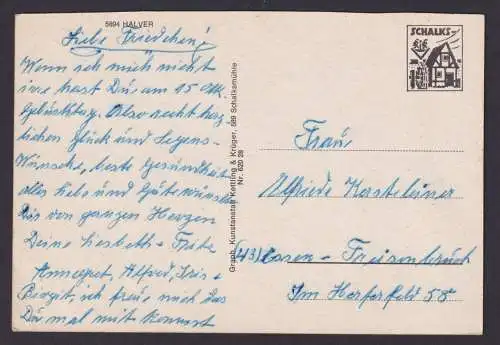 5894 HALVER
Liebe Friedchen!
Wenn ich mich nicht
irre hast Du am 15 Okt.
Geburtstag. Also recht herz-
lichen Glück und Segens-
Wünsche, beste Gesundheit
alles Liebe und Gute wünschen
Dir von ganzen Herzen
Deine Liesbeth - Fritz
Annegret, Alfred, Iris +
Birgit, ich freue mich das
Du mal mit kommst
Graph. Kunstanstalt Kettling & Krüger, 589 Schalksmühle
Nr. 620 28
SCHALKS-
Frau
Elfriede
(43) Essen - Freisenbruch
Im 58